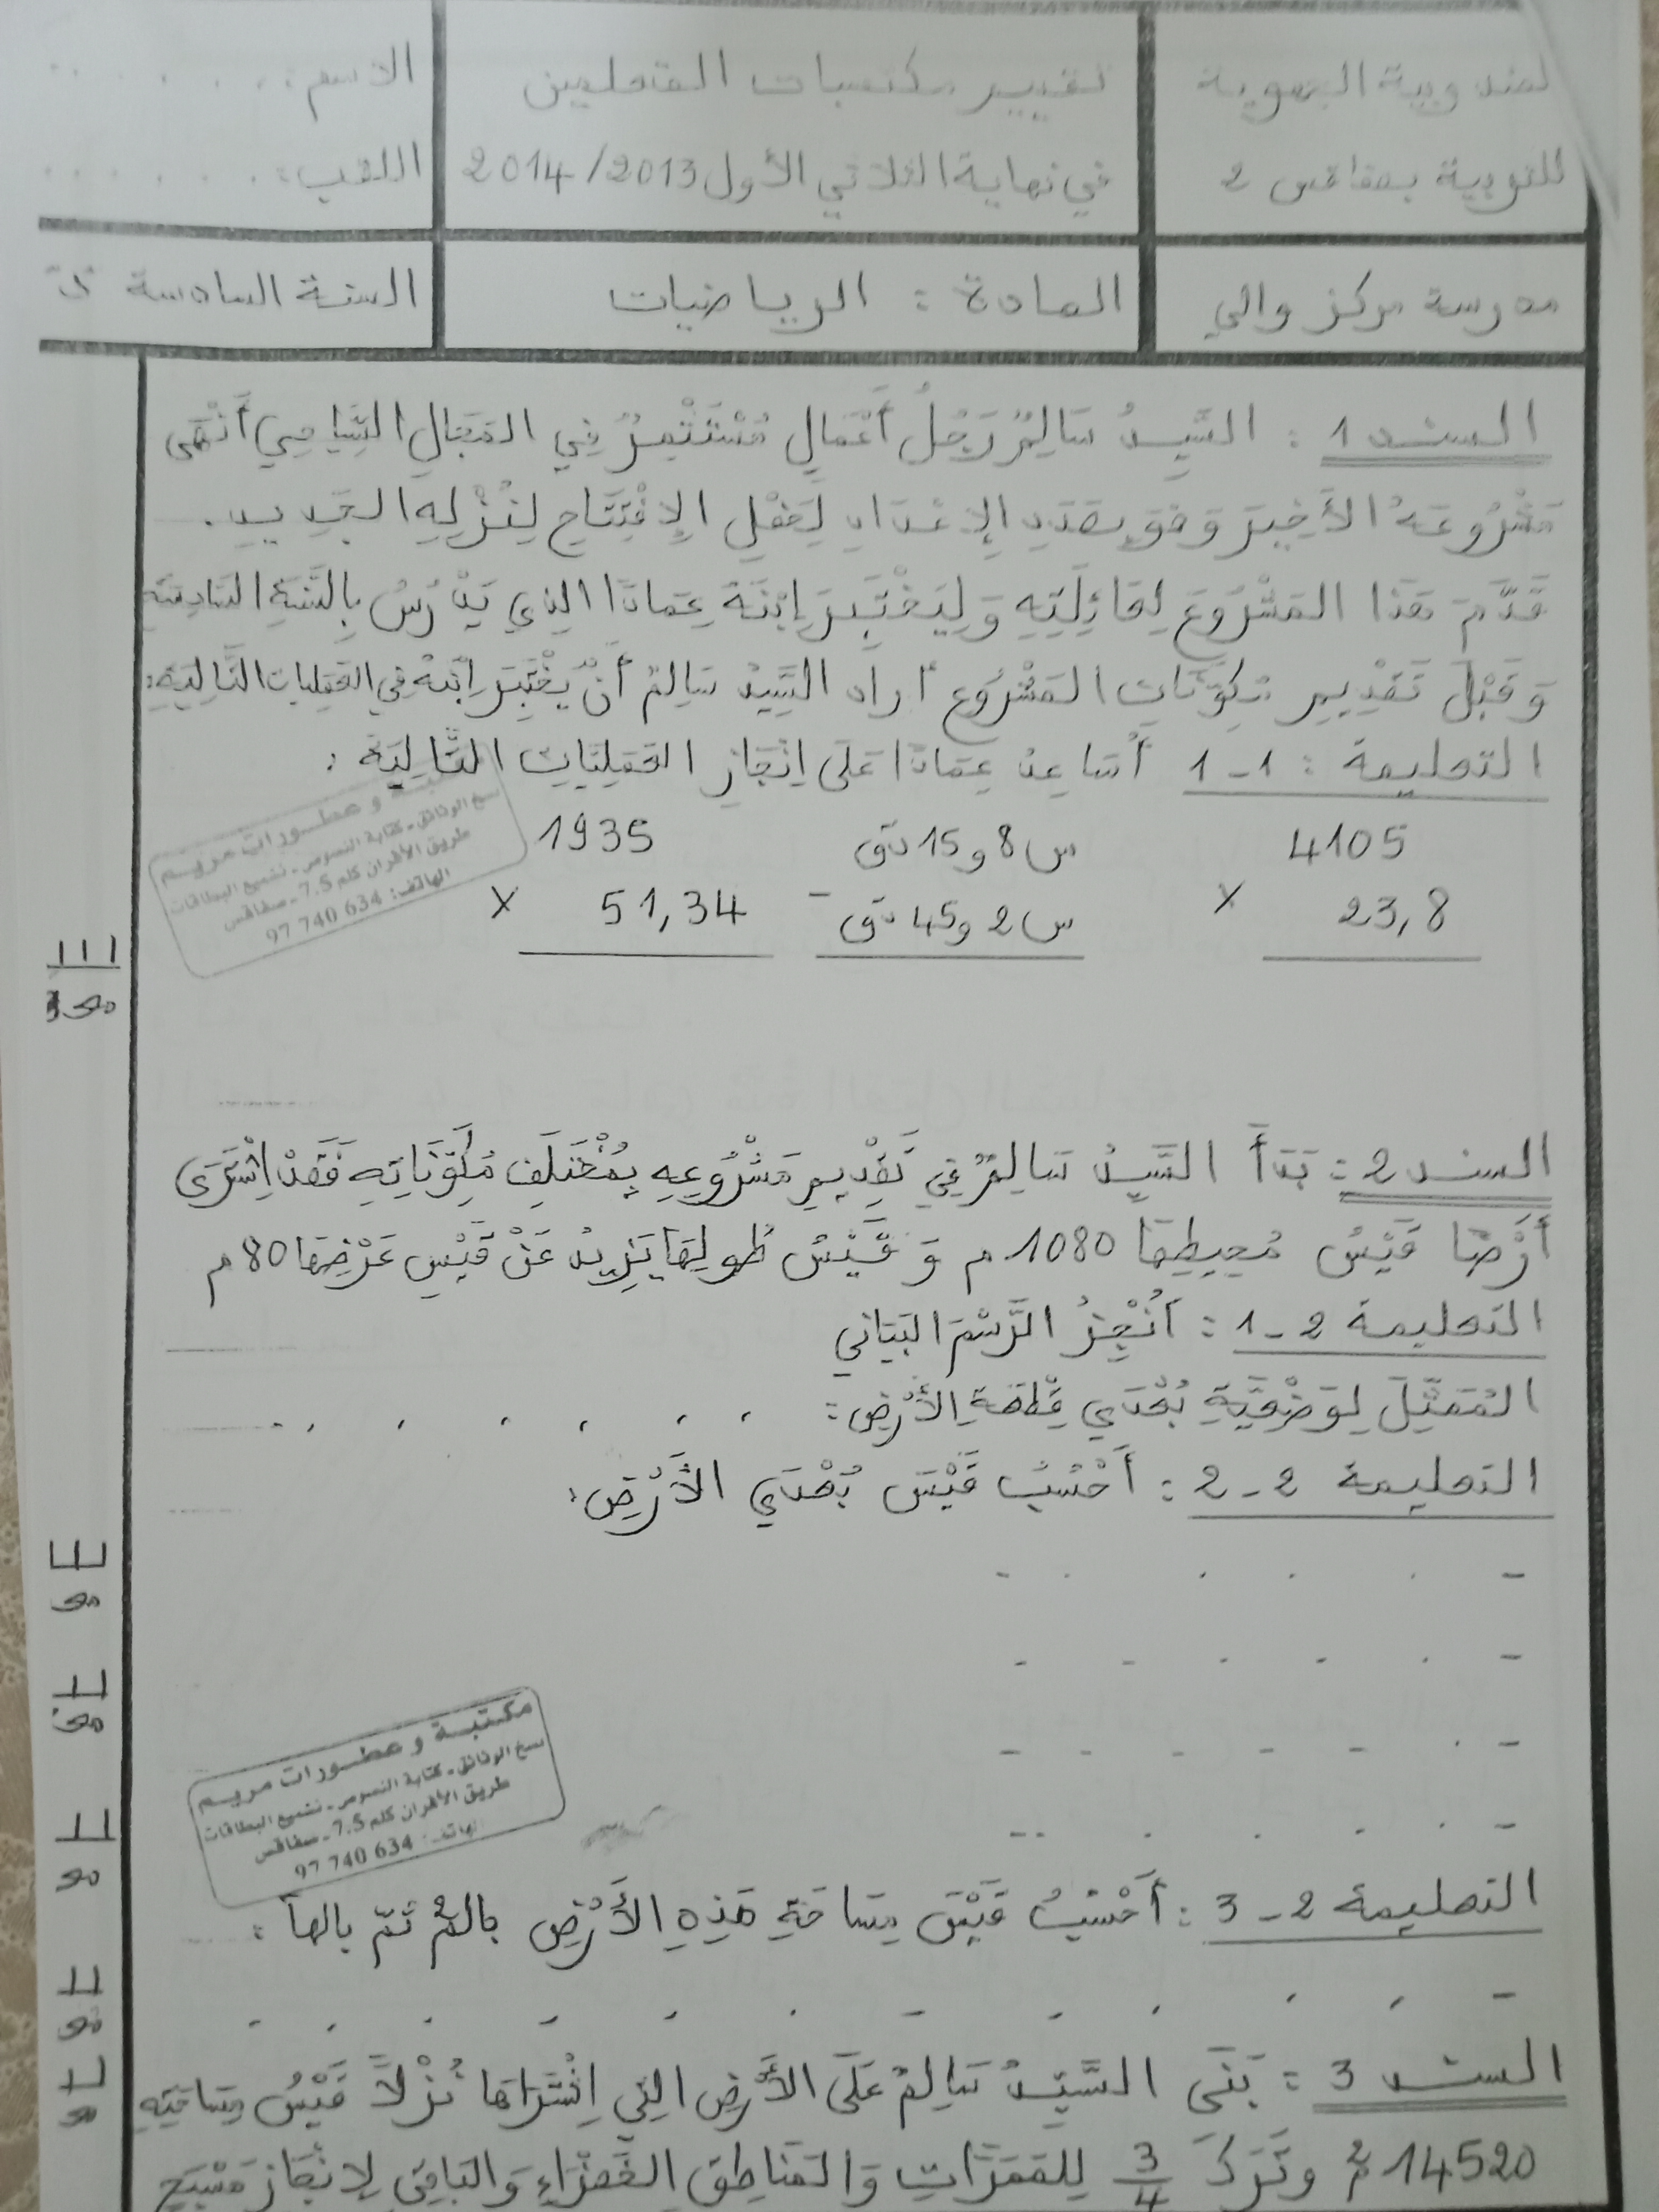 المندوبية الجهوية
للتربية بصفاقس 2
تقييم مكتسبات المتعلمين
في نهاية الثلاثي الأول 2014/2013
الاسم: . . . . . .
اللقب: . . . . . .
مدرسة مركز والي
المادة : الرياضيات
السنة السادسة
السند 1 : السَّيِدُ سَالِمٌ رَجُلُ أَعْمَالٍ مُسْتَثْمِرٌ فِي المَجَالِ السِّيَاحِي أَنْهَى
مَشْرُوعَهُ الأَخِيرَ وَهُوَ بِصَدَدِ الإِعْدَادِ لِحَفْلِ الإِفْتِتَاحِ لِنُزْلِهِ الجَدِيدِ.
قَدَّمَ هَذَا المَشْرُوعَ لِعَائِلَتِهِ وَلِيَخْتَبِرَ اِبْنَهُ عِمَادًا الذِي يَدْرُسُ بِالسَّنَةِ السَّادِسَةِ
وَقَبْلَ تَقْدِيمِ مُكَوِّنَاتِ المَشْرُوعِ أراد السَّيِّدُ سَالِمٌ أَنْ يَخْتَبِرَ اِبْنَهُ فِي العَمَلِيات التَّالِيَةِ:
التعليمة : 1-1 أُسَاعِدُ عِمَادًا عَلَى اِنْجَازِ العَمَلِيَّاتِ التَّالِيَةِ :
4105
× 23,8
8 س و 15 دق
- 2 س و 45 دق
1935
× 51,34
مكتبة و عطورات مريم
نسخ الوثائق - كتابة النصوص - تشميع البطاقات
طريق الأفران كلم 7.5 - صفاقس
الهاتف: 634 740 97
مع 1
السند 2 : بَدَأَ السَّيِّدُ سَالِمٌ فِي تَقْدِيمِ مَشْرُوعِهِ بِمُخْتَلَفِ مُكَوِّنَاتِهِ فَقَدْ اِشْتَرَى
أَرْضًا قَيْسُ مُحِيطِهَا 1080 م وَ قَيْسُ طُولِهَا يَزِيدُ عَنْ قَيْسِ عَرْضِهَا 80 م
التعليمة 2-1 : أُنْجِزُ الرَّسْمَ البَيَانِي
المُمَثِّلَ لِوَضْعِيَّةِ بُعْدَي قِطْعَةِ الأَرْضِ: . . . . . . .
التعليمة 2-2 : أَحْسُبُ قَيْسَ بُعْدَي الأَرْضِ:
مكتبة و عطورات مريم
نسخ الوثائق - كتابة النصوص - تشميع البطاقات
طريق الأفران كلم 7.5 - صفاقس
الهاتف: 634 740 97
التعليمة 2-3 : أَحْسُبُ قَيْسَ مِسَاحَةِ هَذِهِ الأَرْضِ بالم² ثمّ بالهآ :
السند 3 : بَنَى السَّيِّدُ سَالِمٌ عَلَى الأَرْضِ التِي اِشْتَرَاهَا نُزْلاً قَيْسُ مِسَاحَتِهِ
14520 م² وتَرَكَ 3/4 لِلمَمَرَّاتِ وَالمَنَاطِقِ الخَضْرَاءِ وَالبَاقِي لِاِنْجَازِ مَسْبَحٍ